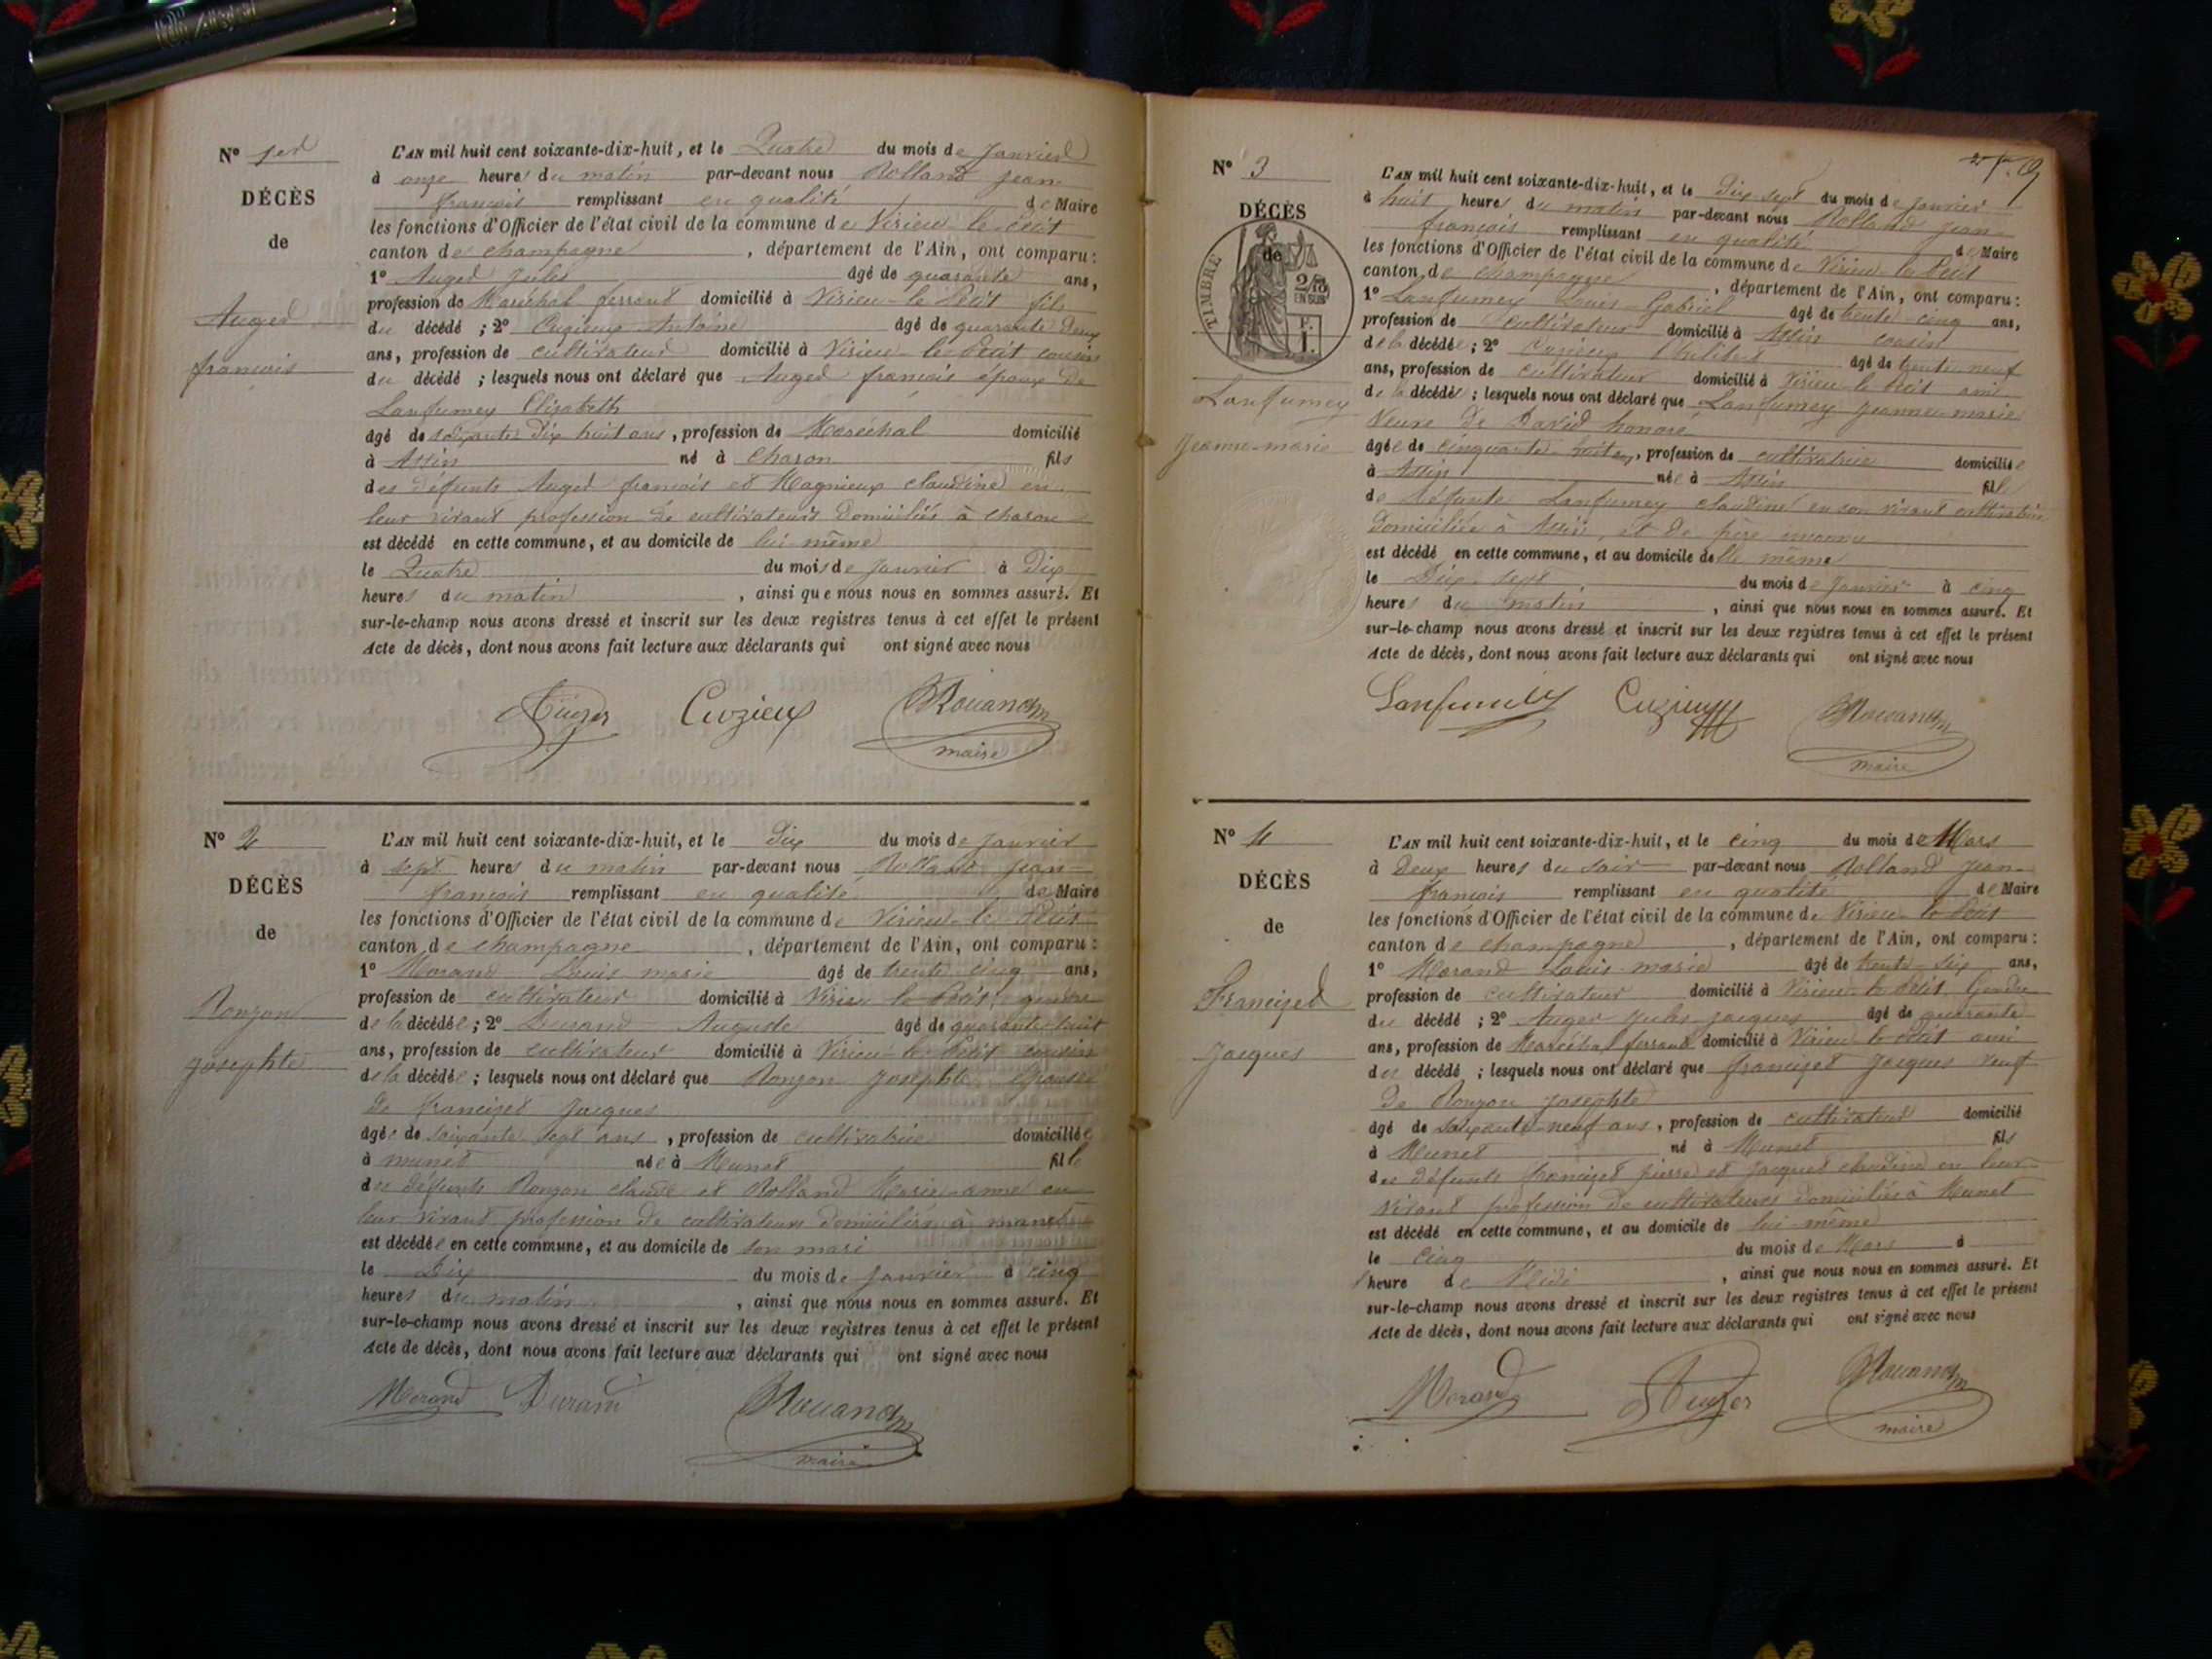 Nº 1er
DÉCÈS
de
Auger
françois
L'AN mil huit cent soixante-dix-huit, et le Quatre du mois de Janvier
à onze heures du matin par-devant nous Rolland jean-
françois remplissant en qualité de Maire
les fonctions d'Officier de l'état civil de la commune de Virieu-le-Petit
canton de champagne, département de l'Ain, ont comparu :
1º Auger Jules âgé de quarante ans,
profession de Maréchal ferrant domicilié à Virieu-le-Petit fils
du décédé ; 2º Cuzieux Antoine âgé de quarante deux
ans, profession de cultivateur domicilié à Virieu-le-Petit cousin
du décédé ; lesquels nous ont déclaré que Auger françois époux de
Lanfumey Elisabeth
âgé de soixante dix huit ans, profession de Maréchal domicilié
à Assin né à Charon fils
des défunts Auger françois et Magnieux claudine en
leur vivant profession de cultivateurs Domiciliés à Charon
est décédé en cette commune, et au domicile de lui-même
le Quatre du mois de Janvier à Dix
heures du matin, ainsi que nous nous en sommes assuré. Et
sur-le-champ nous avons dressé et inscrit sur les deux registres tenus à cet effet le présent
Acte de décès, dont nous avons fait lecture aux déclarants qui ont signé avec nous
Auger Cuzieux
maire
Nº 2
DÉCÈS
de
Ronzon
josephte
L'AN mil huit cent soixante-dix-huit, et le Dix du mois de Janvier
à sept heures du matin par-devant nous Rolland jean-
françois remplissant en qualité de Maire
les fonctions d'Officier de l'état civil de la commune de Virieu-le-Petit
canton de champagne, département de l'Ain, ont comparu :
1º Morand Louis marie âgé de trente cinq ans,
profession de cultivateur domicilié à Virieu le Petit, gendre
de la décédée ; 2º Durand Auguste âgé de quarante huit
ans, profession de cultivateur domicilié à Virieu-le-Petit cousin
de la décédée ; lesquels nous ont déclaré que Ronzon Josephte Epouse
de francizet Jacques
âgée de soixante sept ans, profession de cultivatrice domiciliée
à munet née à Munet fille
des défunts Ronzon claude et Rolland Marie-anne en
leur vivant profession de cultivateurs domiciliés à munet
est décédée en cette commune, et au domicile de son mari
le Dix du mois de Janvier à cinq
heures du matin, ainsi que nous nous en sommes assuré. Et
sur-le-champ nous avons dressé et inscrit sur les deux registres tenus à cet effet le présent
Acte de décès, dont nous avons fait lecture aux déclarants qui ont signé avec nous
Morand Durand
maire
Nº 3
DÉCÈS
de
TIMBRE
2/10
EN SUS
F.
1.
Lanfumey
Jeanne-marie
L'AN mil huit cent soixante-dix-huit, et le Dix sept du mois de janvier
à huit heures du matin par-devant nous Rolland Jean-
françois remplissant en qualité de Maire
les fonctions d'Officier de l'état civil de la commune de Virieu-le-Petit
canton de champagne, département de l'Ain, ont comparu :
1º Lanfumey Louis-Gabriel âgé de trente-cinq ans,
profession de cultivateur domicilié à Assin cousin
de la décédée ; 2º Cuzieux âgé de trente neuf
ans, profession de cultivateur domicilié à Virieu-le-Petit ami
de la décédée ; lesquels nous ont déclaré que Lanfumey Jeanne-marie
Veuve de David honoré
âgée de cinquante-huit, profession de cultivatrice domiciliée
à Assin née à Assin fille
de défunte Lanfumey claudine en son vivant cultivatrice
domiciliée à Assin, et de père inconnu
est décédé en cette commune, et au domicile de elle même
le Dix-sept du mois de Janvier à cinq
heures du matin, ainsi que nous nous en sommes assuré. Et
sur-le-champ nous avons dressé et inscrit sur les deux registres tenus à cet effet le présent
Acte de décès, dont nous avons fait lecture aux déclarants qui ont signé avec nous
Lanfumey Cuzieux
maire
Nº 4
DÉCÈS
de
Francizet
Jacques
L'AN mil huit cent soixante-dix-huit, et le cinq du mois de Mars
à Deux heures du soir par-devant nous Rolland Jean-
françois remplissant en qualité de Maire
les fonctions d'Officier de l'état civil de la commune de Virieu-le-Petit
canton de champagne, département de l'Ain, ont comparu :
1º Morand Louis-marie âgé de trente-six ans,
profession de cultivateur domicilié à Virieu-le-Petit Gendre
du décédé ; 2º Auger Jules Jacques âgé de quarante
ans, profession de Maréchal ferrant domicilié à Virieu le Petit ami
du décédé ; lesquels nous ont déclaré que francizet Jacques veuf
de Ronzon josephte
âgé de soixante-neuf ans, profession de cultivateur domicilié
à Munet né à Munet fils
des défunts francizet pierre et jacquet claudine en leur
vivant profession de cultivateurs domiciliés à Munet
est décédé en cette commune, et au domicile de lui-même
le cinq du mois de Mars à
heure de Midi, ainsi que nous nous en sommes assuré. Et
sur-le-champ nous avons dressé et inscrit sur les deux registres tenus à cet effet le présent
Acte de décès, dont nous avons fait lecture aux déclarants qui ont signé avec nous
Morand Auger
maire